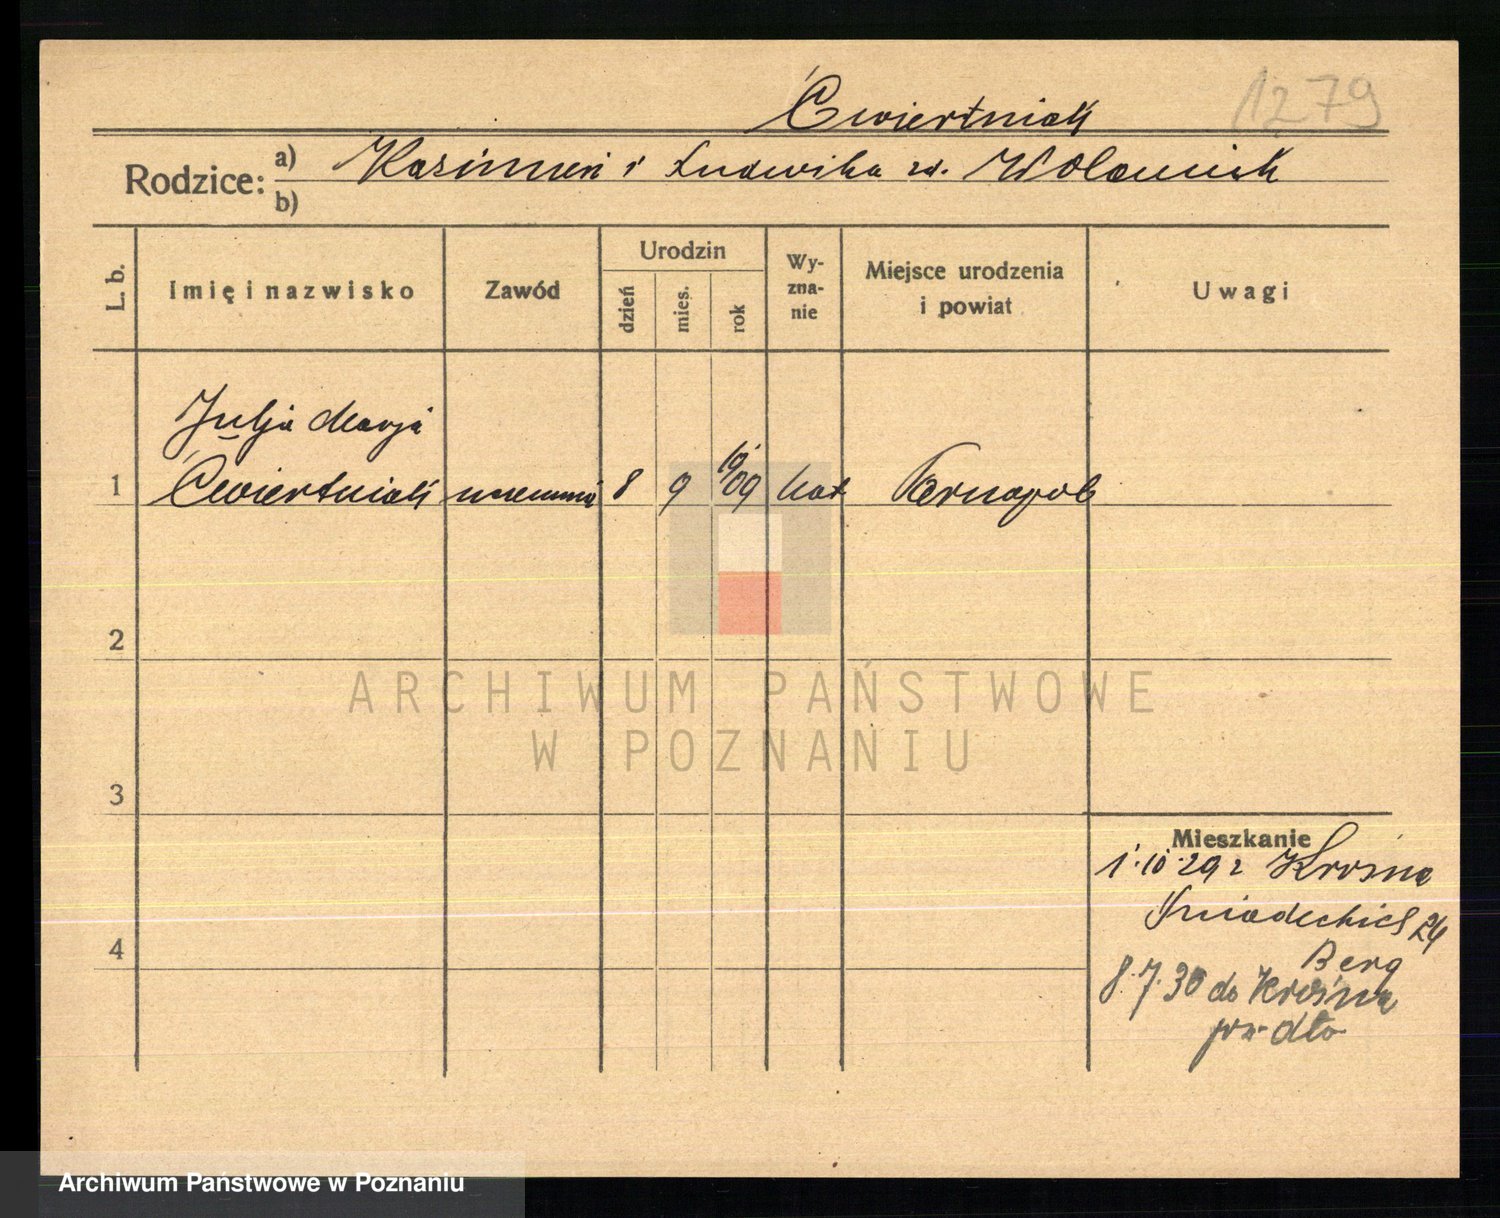 Ćwiertniak 1279
Rodzice: a) Kazimierz i Ludwika zd. Wolaniuk
b)
L. b. Imię i nazwisko Zawód Urodzin dzień mies. rok Wy-zna-nie Miejsce urodzenia i powiat Uwagi
Julja Marja
1 Ćwiertniak uczennica 8 9 1909 kat Tarnopol
2
ARCHIWUM PAŃSTWOWE
W POZNANIU
3
Mieszkanie
1.10.29 z Krosna
Śniadeckich 26
Berg
4
8.7.30 do Krosna
Archiwum Państwowe w Poznaniu